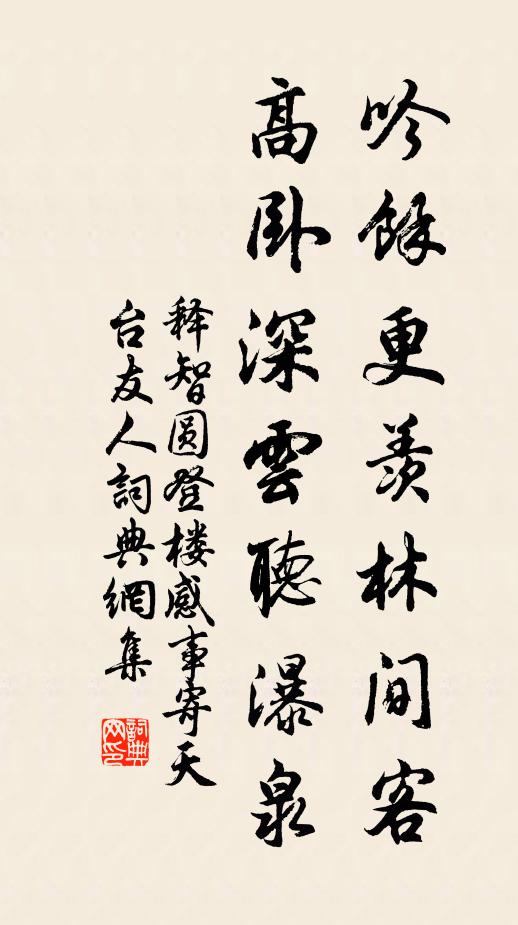 吟餘更羨林間客
高卧深雲聽瀑泉
释智圆登楼感事寄天
台友人詞典網集
詞典
网印